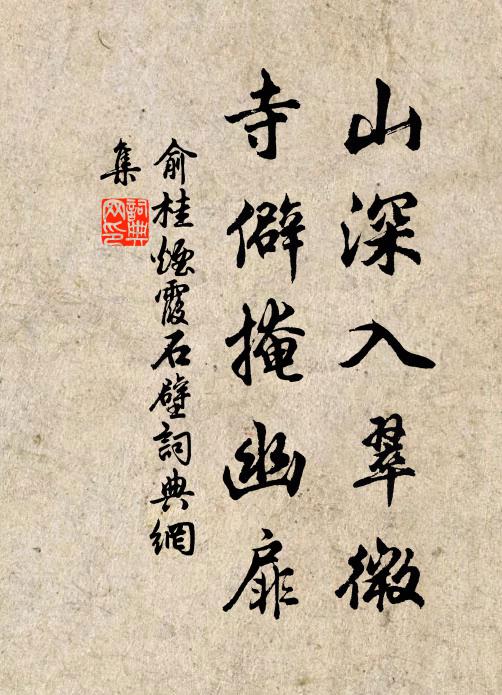 山深入翠微
寺僻掩幽扉
俞桂煙霞石壁詞典網
集
詞典
网印